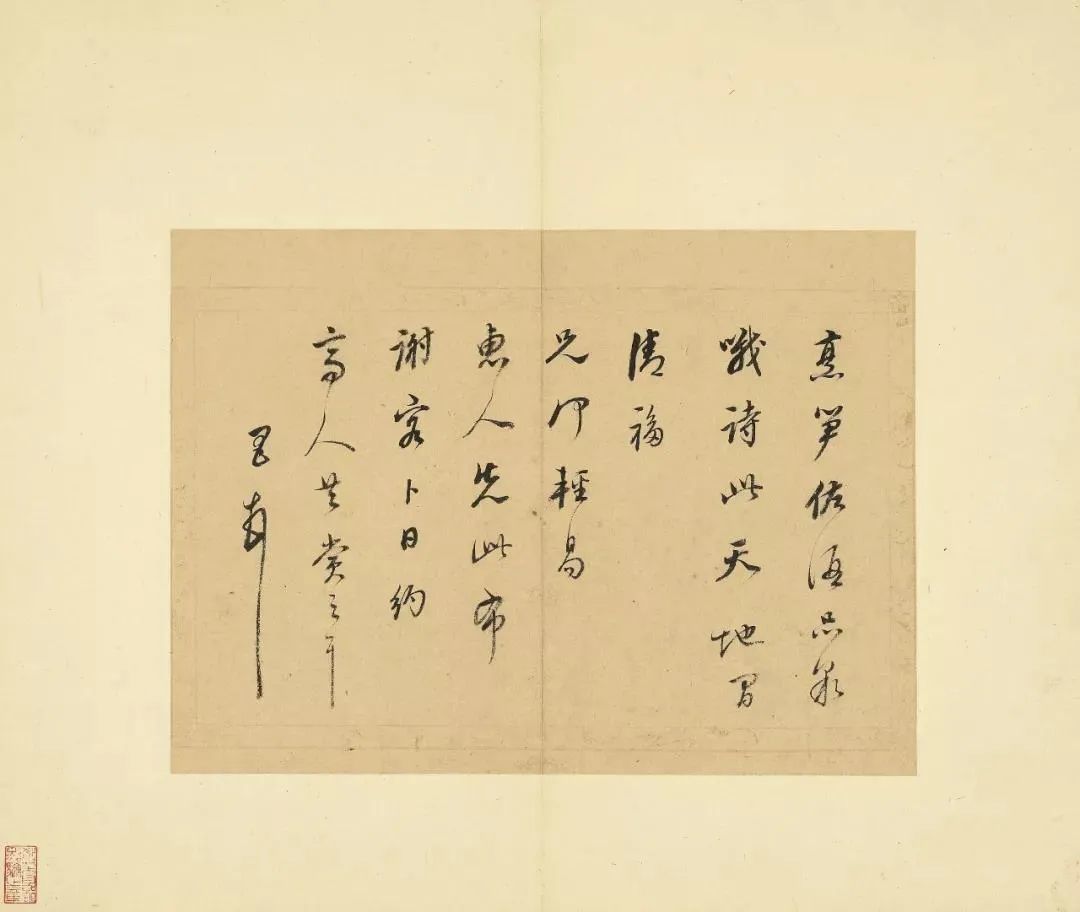 烹笋佐酒品泉
哦詩此天地間
清福
兄何輕易
惠人先此布
謝容卜日約
高人共賞之耳